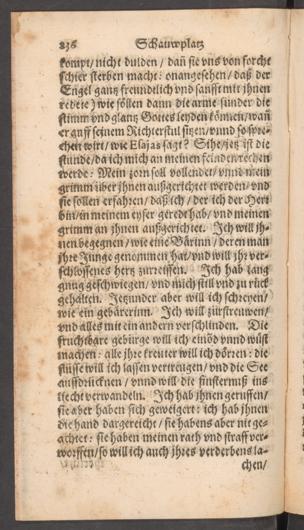 236 Schauwplatz
kompt/ nicht dulden / dañ sie vns von forcht
schier sterben macht: onangesehen/ daß der
Engel gantz freundtlich vnd sanfft mit jhnen
redete) wie söllen dann die arme sünder die
stimm vnd glantz Gottes leyden können/ wañ
er auff seinem Richterstul sitzen/ vnnd so spre-
chen wirt/ wie Esajas sagt? Sihe/ jetz ist die
stunde/ da ich mich an meinen feinden rechen
werde: Mein zorn soll vollendet/ vnnd mein
grimm über jhnen außgerichtet werden/ vnd
sie sollen erfahren/ daß ich / der ich der Herr
bin/ in meinem eyfer geredt hab/ vnd meinen
grimm an jhnen außgerichtet. Ich will jh-
nen begegnen/ wie eine Bärinn/ deren man
jhre Junge genommen hat/ vnd will jhr ver-
schlossenes hertz zureissen. Ich hab lang
gnug geschwiegen/ vnd mich still vnd zu rück
gehalten. Jetzunder aber will ich schreyen/
wie ein gebärerinn. Ich will zürstreuwen/
vnd alles mit ein andern verschlinden. Die
fruchtbare gebürge will ich einöd vnnd wüst
machen: alle jhre kreuter will ich dörren: die
flüsse will ich lassen vertreugen/ vnd die See
außdrücknen / vnnd will die finsternuß ins
liecht verwandeln. Ich hab jhnen geruffen/
sie aber haben sich geweigert: ich hab jhnen
die hand dargereicht/ sie habens aber nit ge-
achtet: sie haben meinen rath vnd straff ver-
worffen/ so will ich auch jhres verderbens la-
chen/